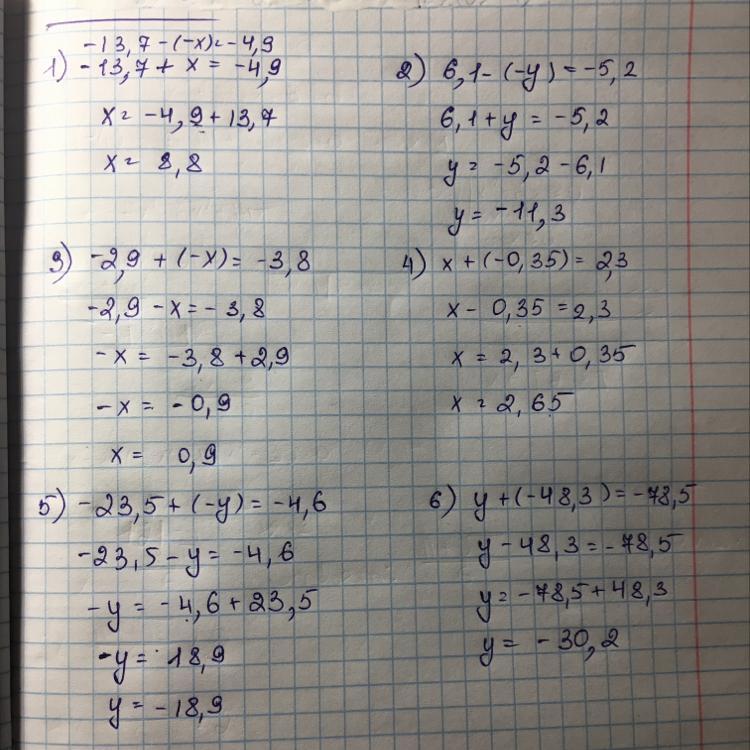 -13,7-(-x)=-4,9
1) -13,7+x=-4,9
x=-4,9+13,7
x=8,8
2) 6,1-(-y)=-5,2
6,1+y=-5,2
y=-5,2-6,1
y=-11,3
3) -2,9+(-x)=-3,8
-2,9-x=-3,8
-x=-3,8+2,9
-x=-0,9
x=0,9
4) x+(-0,35)=2,3
x-0,35=2,3
x=2,3+0,35
x=2,65
5) -23,5+(-y)=-4,6
-23,5-y=-4,6
-y=-4,6+23,5
-y=18,9
y=-18,9
6) y+(-48,3)=-78,5
y-48,3=-78,5
y=-78,5+48,3
y=-30,2